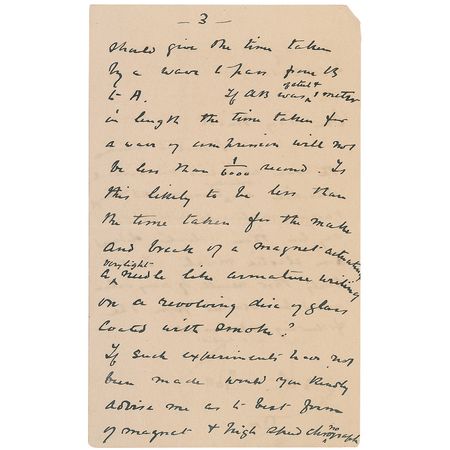 — 3 —
should give the time taken
by a wave to pass from B
to A. If AB was of steel & 1 metre
in length the time taken for
a wave of compression will not
be less than 1/6000 second. Is
this likely to be less than
the time taken for the make
and break of a magnet actuating
a very light needle like armature writing
on a revolving disc of glass
coated with smoke?
If such experiments have not
been made would you kindly
advise me as to best form
of magnet & high speed chronograph